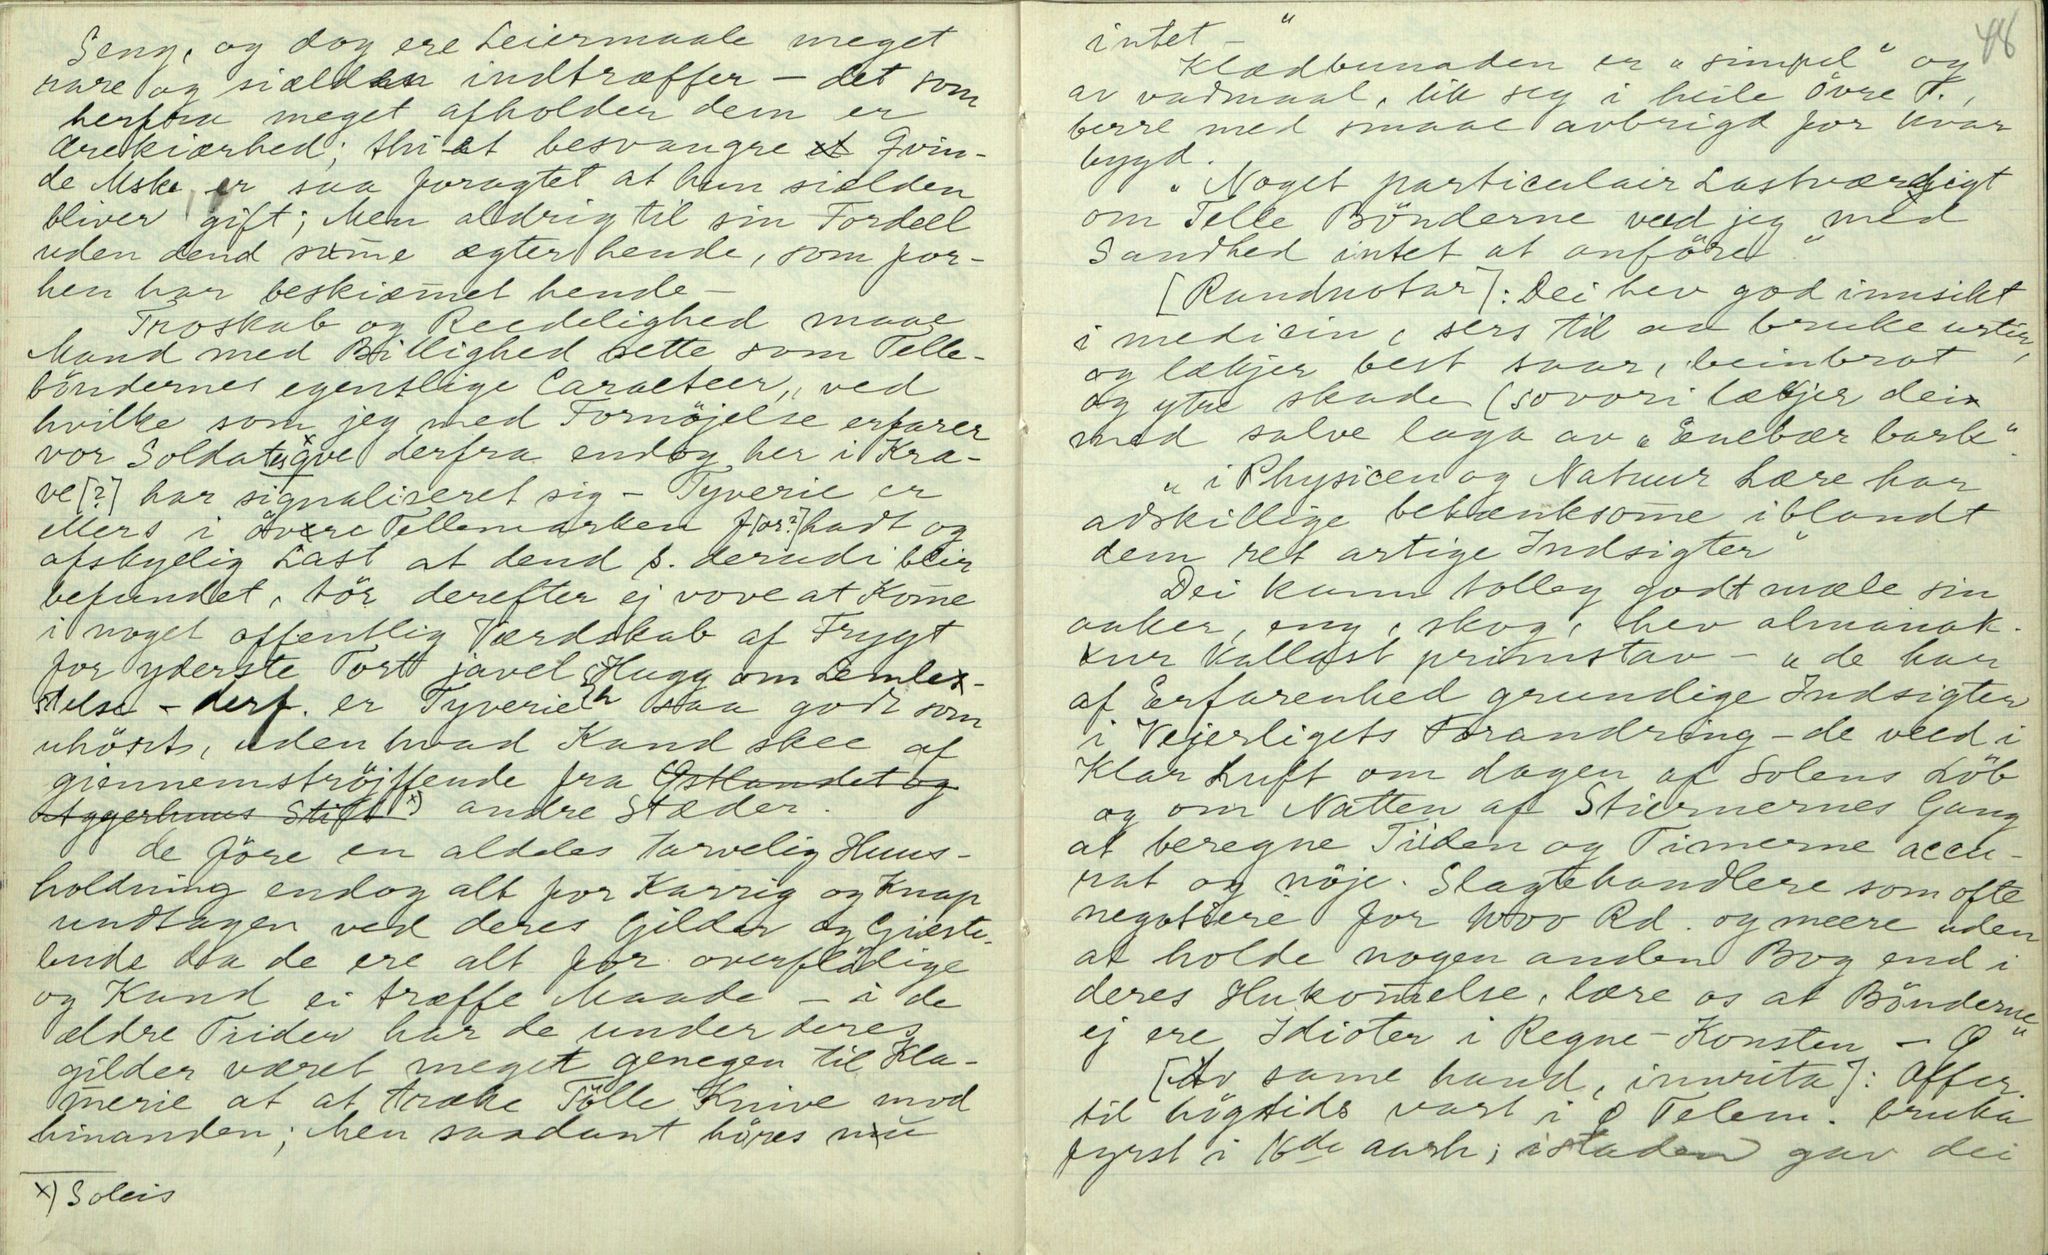 Seng, og dog ere Leiermaale meget
rare og siælden indtræffer – det som
herfra meget afholder dem er
ærekiærhed; thi et besvangre et Qvin-
de Mske er saa foragtet at hun sielden
bliver gift; Men aldrig til sin Fordeel
uden dend same ægter hende, som for-
hen har beskiæmet hende –
Troskab og Reedelighed maae
Mand med Billighed sette som Telle-
böndernes egentlige Caracteer, ved
hvilke som jeg med Fornöjelse erfarer
vor Soldatesqve derfra endog her i Kra-
ve [?] har signaliseret sig – Tyverie er
ellers i övere Tellemarken f[or?] hadt og
afskyelig Last at dend s. derudi bleir
befundet, tör derefter ej vove at Kome
i noget offentlig Værdskab af Frygt
for yderste Tort javel Hugg om Lemle-
stelse – derf. er Tyverie saa godt som
uhört, uden hvad Kand skee af
giennemströjffende fra Östlandet og
Aggerhuus Stift x) andre Stæder.
de före en aldeles tarvelig Huus-
holdning endog alt for Karrig og Knap
undtagen ved deres Gilder og Gieste-
bude da de ere alt for overflödige
og Kand ei træffe Maade – i de
ældre Tiider har de under deres
gilder været meget genegen til Kla-
merie at at træke Tölle Knive mod
hinanden; Men saadant höres nu
x) Soleis
48
intet – "
Klædbunaden er „simpel" og
av vadmaal, lik seg i heile Övre T.,
berre med smaae avbrigd for kvar
bygd.
„Noget particulair Lastværdigt
om Telle Bönderne veed jeg med
Sandhed intet at anföre"
[Randnotar]: Dei hev god innsikt
i medicin, sers til aa bruke urter,
og lækjer best saar, beinbrot
og ytre skade (sovori lækjer dei
med salve laga av „Enebær bark"
„i Physicen og Natuur Lære har
adskillige betænksome iblandt
dem ret artige Indsigter"
Dei kunn tolleg godt mæle sin
aaker, eng, skog, hev almanak
kallast primstav – „de har
af Erfarenhed grundige Indsigter
i Vejerligets Forandring – de veed i
Klar Luft om dagen af Solens Löb
og om Natten af Stiernernes Gang
at beregne Tiiden og Timerne accu-
rat og nöje. Slagtehandlere som ofte
negotiere for 1000 Rd. og meere uden
at holde nogen anden Bog end i
deres Hukomelse, lære os at Bönderne
ej ere Idioter i Regne-Konsten – "
[Av same hand, innrita]: Offer
til högtids vart i Ø Telem. bruka
fyrst i 16de aarh; istaden gav dei